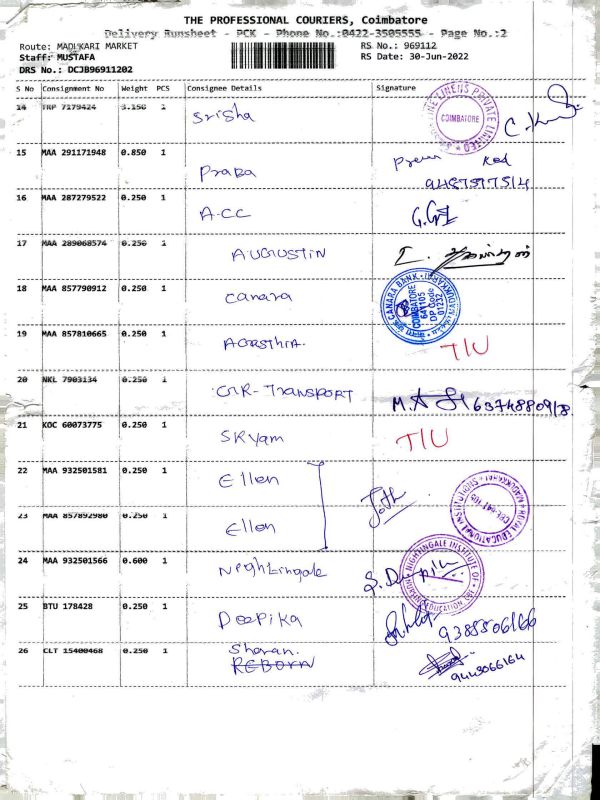 THE PROFESSIONAL COURIERS, Coimbatore
Delivery Runsheet - PCK - Phone No.:0422-3505555 - Page No.:2
Route: MADUKARI MARKET
RS No.: 969112
Staff: MUSTAFA
RS Date: 30-Jun-2022
DRS No.: DCJB96911202
S No Consignment No Weight PCS Consignee Details Signature
14 TRP 7179424 3.150 1 Srisha
COIMBATORE
15 MAA 291171948 0.850 1 Praba
16 MAA 287279522 0.250 1 A.CC
17 MAA 289068574 0.250 1 AUGUSTIN
18 MAA 857790912 0.250 1 Canara
CANARA BANK
COIMBATORE
641105
DP Code
01232
19 MAA 857810665 0.250 1 AGASTHIA. T/U
20 NKL 7903134 0.250 1 GTR-TRANSPORT
21 KOC 60073775 0.250 1 SKYAM T/U
22 MAA 932501581 0.250 1 Ellen
ROYAL EDUCATIONAL INSTITUTIONS
23 MAA 857892980 0.250 1 Ellen
24 MAA 932501566 0.600 1 Neghtingale
NIGHTINGALE INSTITUTE OF
EDUCATION
25 BTU 178428 0.250 1 Deepika
26 CLT 15400468 0.250 1 Sharan.
REBORN
9443066164